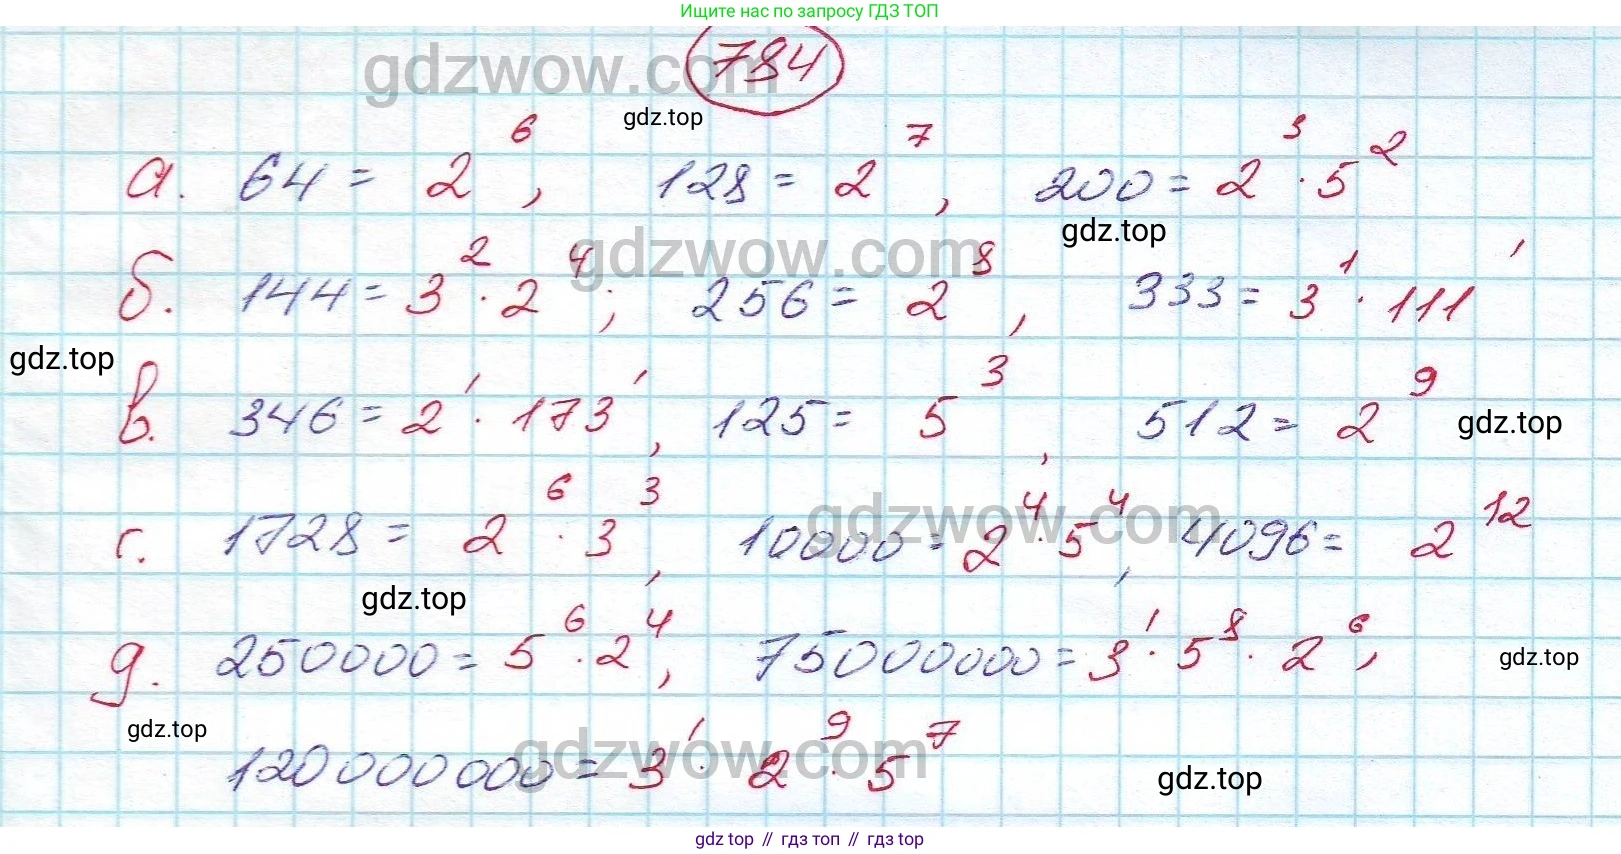 Ищите нас по запросу ГДЗ ТОП
784
gdzwow.com
gdz.top
а. 64 = 2⁶, 128 = 2⁷, 200 = 2³ · 5²
gdz.top
gdzwow.com
б. 144 = 3² · 2⁴; 256 = 2⁸, 333 = 3¹ · 111¹
gdz.top
в. 346 = 2¹ · 173¹, 125 = 5³, 512 = 2⁹
gdz.top
gdzwow.com
г. 1728 = 2⁶ · 3³, 10000 = 2⁴ · 5⁴, 4096 = 2¹²
gdz.top
д. 250000 = 5⁶ · 2⁴, 75000000 = 3¹ · 5⁸ · 2⁶,
gdz.top
gdz.top
120000000 = 3¹ · 2⁹ · 5⁷
gdzwow.com
gdz.top
gdz top // гдз топ // гдз top